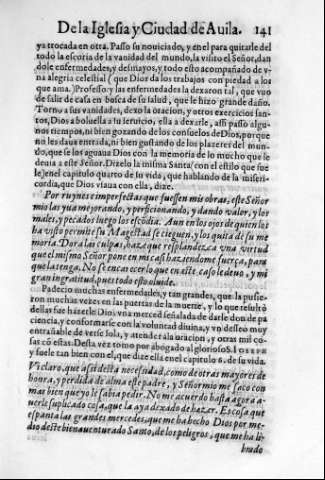 De la Iglesia y Ciudad de Auila. 141
ya trocada en otra. Passo su nouiciado, y en el para quitarle del
todo la escoria de la vanidad del mundo, la visito el Señor, dan
dole enfermedades, y desmayos, y todo esto acompañado de v-
na alegria celestial ( que Dios da los trabajos con piedad a los
que ama.) Professo y las enfermedades la dexaron tal, que vuo
de salir de casa en busca de su salud, que le hizo grande daño.
Torno a sus vanidades, dexo la oracion, y otros exercicios san-
tos, Dios a boluella a su seruicio, ella a dexarle, assi passo algu-
nos tiempos, ni bien gozando de los consuelos de Dios, porque
no les daua entrada, ni bien gustando de los plazeres del mun-
do, que se los aguaua Dios con la memoria de lo mucho que le
deuia a este Señor. Dizelo la misma Santa con el estilo que sue
le, en el capitulo quarto de su vida, que hablando de la miseri-
cordia, que Dios vsaua con ella, dize.
Por ruynes e imperfectas que fuessen mis obras, este Señor
mio las yua mejorando, y perficionando, y dando valor, y los
males, y pecados luego los escondia. Aun en los ojos de quien los
ha visto permite su Magestad se cieguen, y los quita de su me
moria. Dora las culpas, haze que resplandezca vna virtud
que el mismo Señor pone en mi casi haziendome fuerça, para
que la tenga. No se encarecer lo que en este caso le deuo, y mi
gran ingratitud, pues todo esto oluide.
Padecio muchas enfermedades, y tan grandes, que la pusie-
ron muchas vezes en las puertas de la muerte, y lo que resulto
dellas fue hazerle Dios vna merced señalada de darle don de pa
ciencia, y conformarse con la voluntad diuina, y vn desseo muy
entrañable de verse sola, y atender a la oracion, y otras mil co
sas cõ estas. Desta vez tomo por abogado al glorioso S. Ioseph
y suele tan bien con el, que dize ella en el capitulo 6. de su vida.
Vi claro, que assi desta necesidad, como de otras mayores de
honra, y perdida de alma este padre, y Señor mio me saco con
mas bien que yo le sabia pedir. No me acuerdo hasta agora a-
uerle suplicado cosa, que la aya dexado de hazer. Es cosa que
espanta las grandes mercedes, que me ha hecho Dios por me-
dio deste bienauenturado Santo, de los peligros, que me ha li-
brado